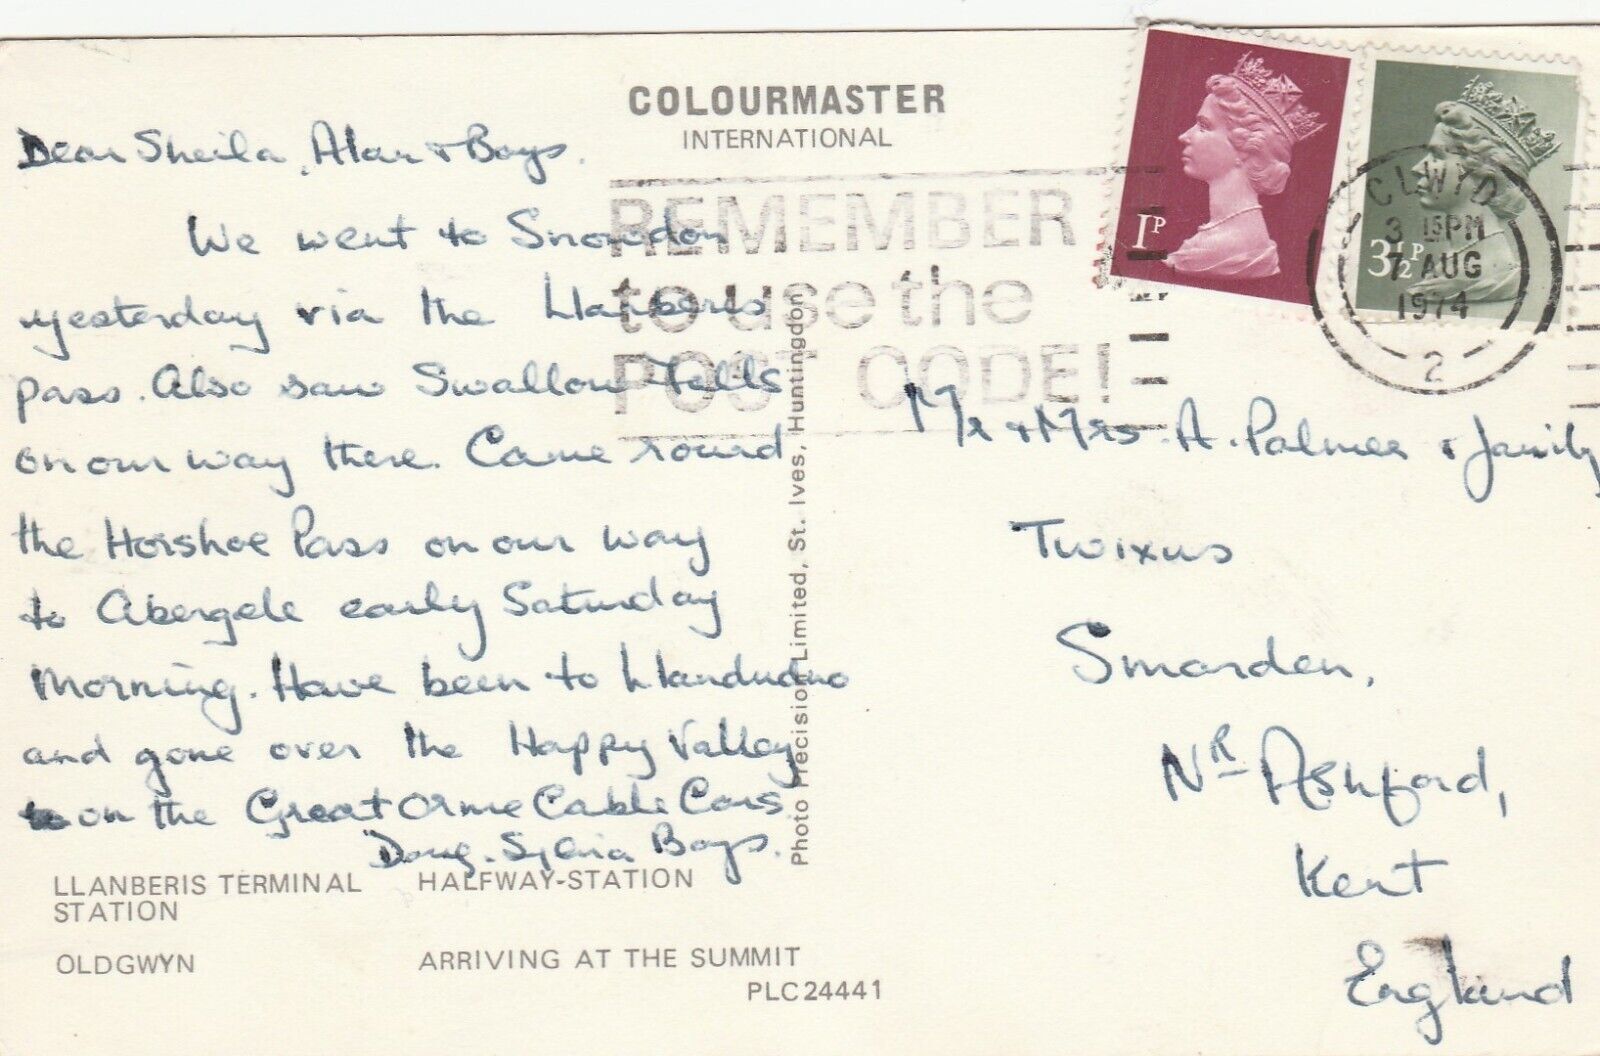 COLOURMASTER
INTERNATIONAL
REMEMBER
to use the
POST CODE!
1P
3½P
CLWYD
3 15PM
7 AUG
1974
2
Dear Sheila, Alan & Boys.
We went to Snowdon
yesterday via the Llanberis
pass. Also saw Swallow Falls
on our way there. Came round
the Horshoe Pass on our way
to Abergele early Saturday
morning. Have been to Llandudno
and gone over the Happy Valley
on the Great Orme Cable Cars.
Doug. Sylvia Boys.
Mr & Mrs. A. Palmer & family
Twixus
Smarden,
NR Ashford,
Kent
England
Photo Precision Limited, St. Ives, Huntingdon
LLANBERIS TERMINAL
STATION
HALFWAY-STATION
OLDGWYN
ARRIVING AT THE SUMMIT
PLC24441